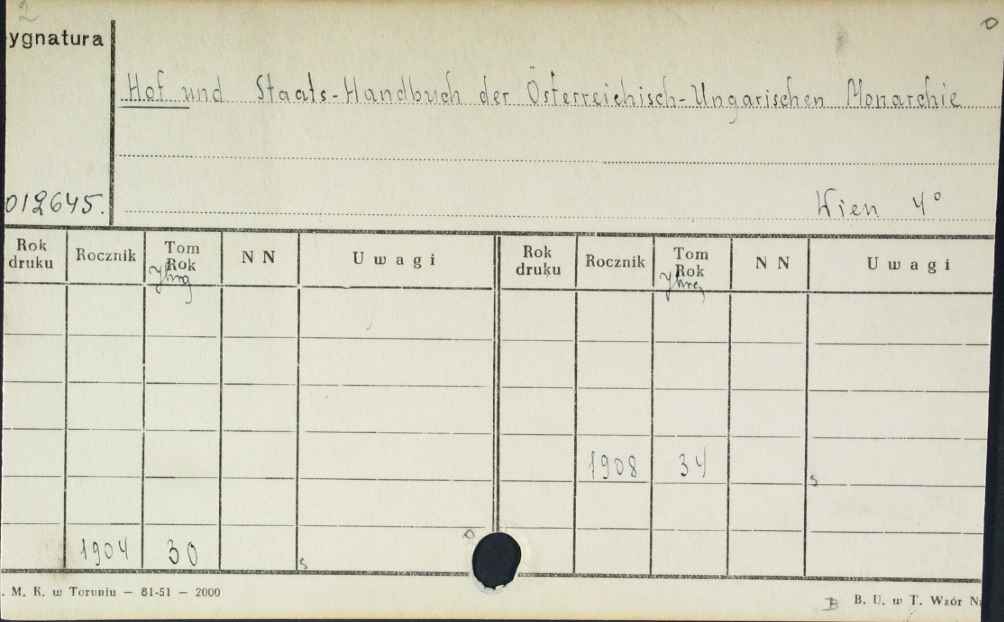 2
ygnatura
Hof und Staats-Handbuch der Österreichisch-Ungarischen Monarchie
012645.
Wien 4°
Rok druku Rocznik Tom Rok Jhrg N N Uwagi Rok druku Rocznik Tom Rok Jhrg N N Uwagi
1908 34 s
1904 30 s
. M. K. w Toruniu — 81-51 — 2000
B B. U. w T. Wzór N